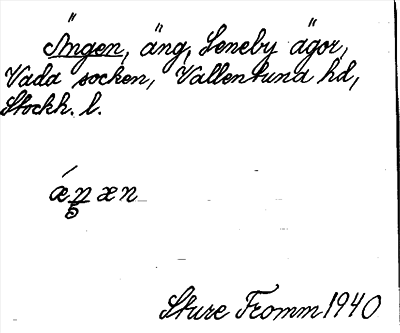 Ängen, äng, Leneby ägor,
Vada socken, Vallentuna hd,
Stockh. l.
Sture Fromm 1940